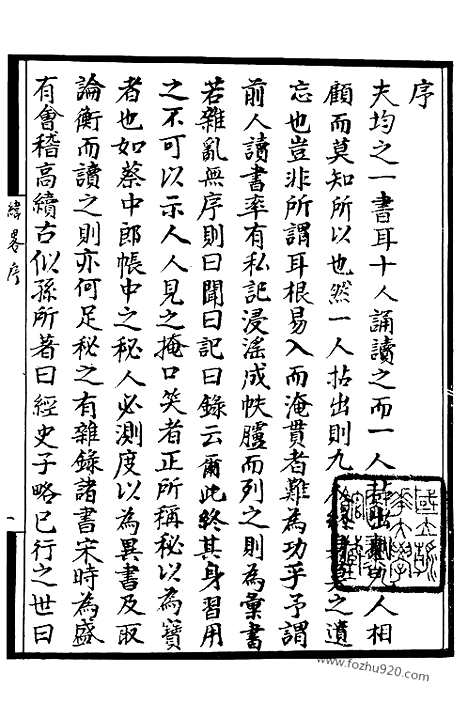 序
夫均之一書耳十人誦讀之而一人拈出則九人相
顧而莫知所以也然一人拈出則九人之遺
忘也豈非所謂耳根易入而淹貫者難為功乎予謂
前人讀書率有私記浸滛成帙臚而列之則為彙書
若雜亂無序則曰聞曰記曰錄云爾此終其身習用
之不可以示人人見之掩口笑者正所稱秘以為寶
者也如蔡中郎帳中之秘人必測度以為異書及取
論衡而讀之則亦何足秘之有雜錄諸書宋時為盛
有會稽高續古似孫所著曰經史子略已行之世曰
緯畧序
一
www.fozhu920.com